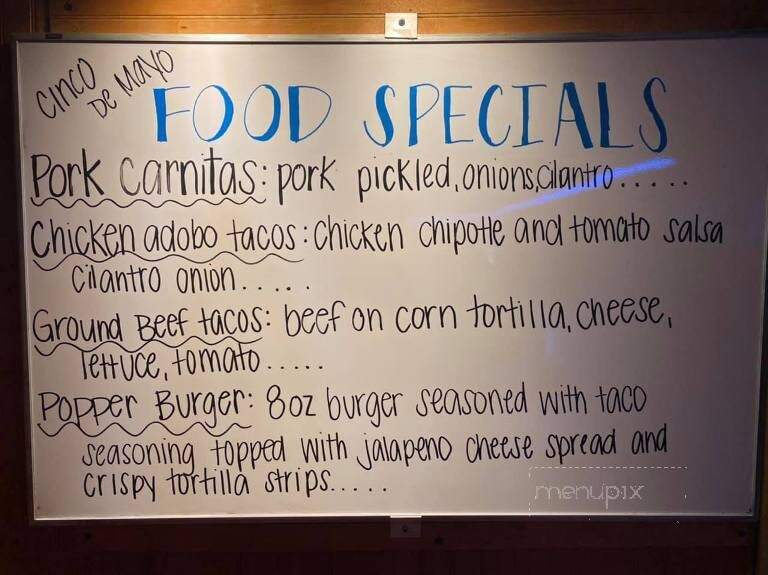 CINCO
DE MAYO
FOOD SPECIALS
Pork Carnitas: pork pickled, onions, cilantro.....
Chicken adobo tacos: chicken chipotle and tomato salsa
cilantro onion.....
Ground Beef tacos: beef on corn tortilla, cheese,
lettuce, tomato.....
Popper Burger: 8oz burger seasoned with taco
seasoning topped with jalapeno cheese spread and
crispy tortilla strips.....
menupix